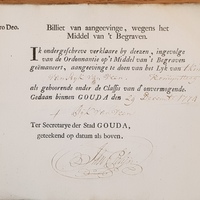 ro Deo.
Billiet van aangeevinge, wegens het
Middel van 't Begraven.
Ik ondergeschreve verklaare by deezen, ingevolge
van de Ordonnantie op 't Middel van 't Begraven
geëmaneert, aangeevinge te doen van het Lyk van
als gehoorende onder de Classis van d'onvermogende.
Gedaan binnen GOUDA, den 29 December
Ter Secretarye der Stad GOUDA,
geteekend op datum als boven.